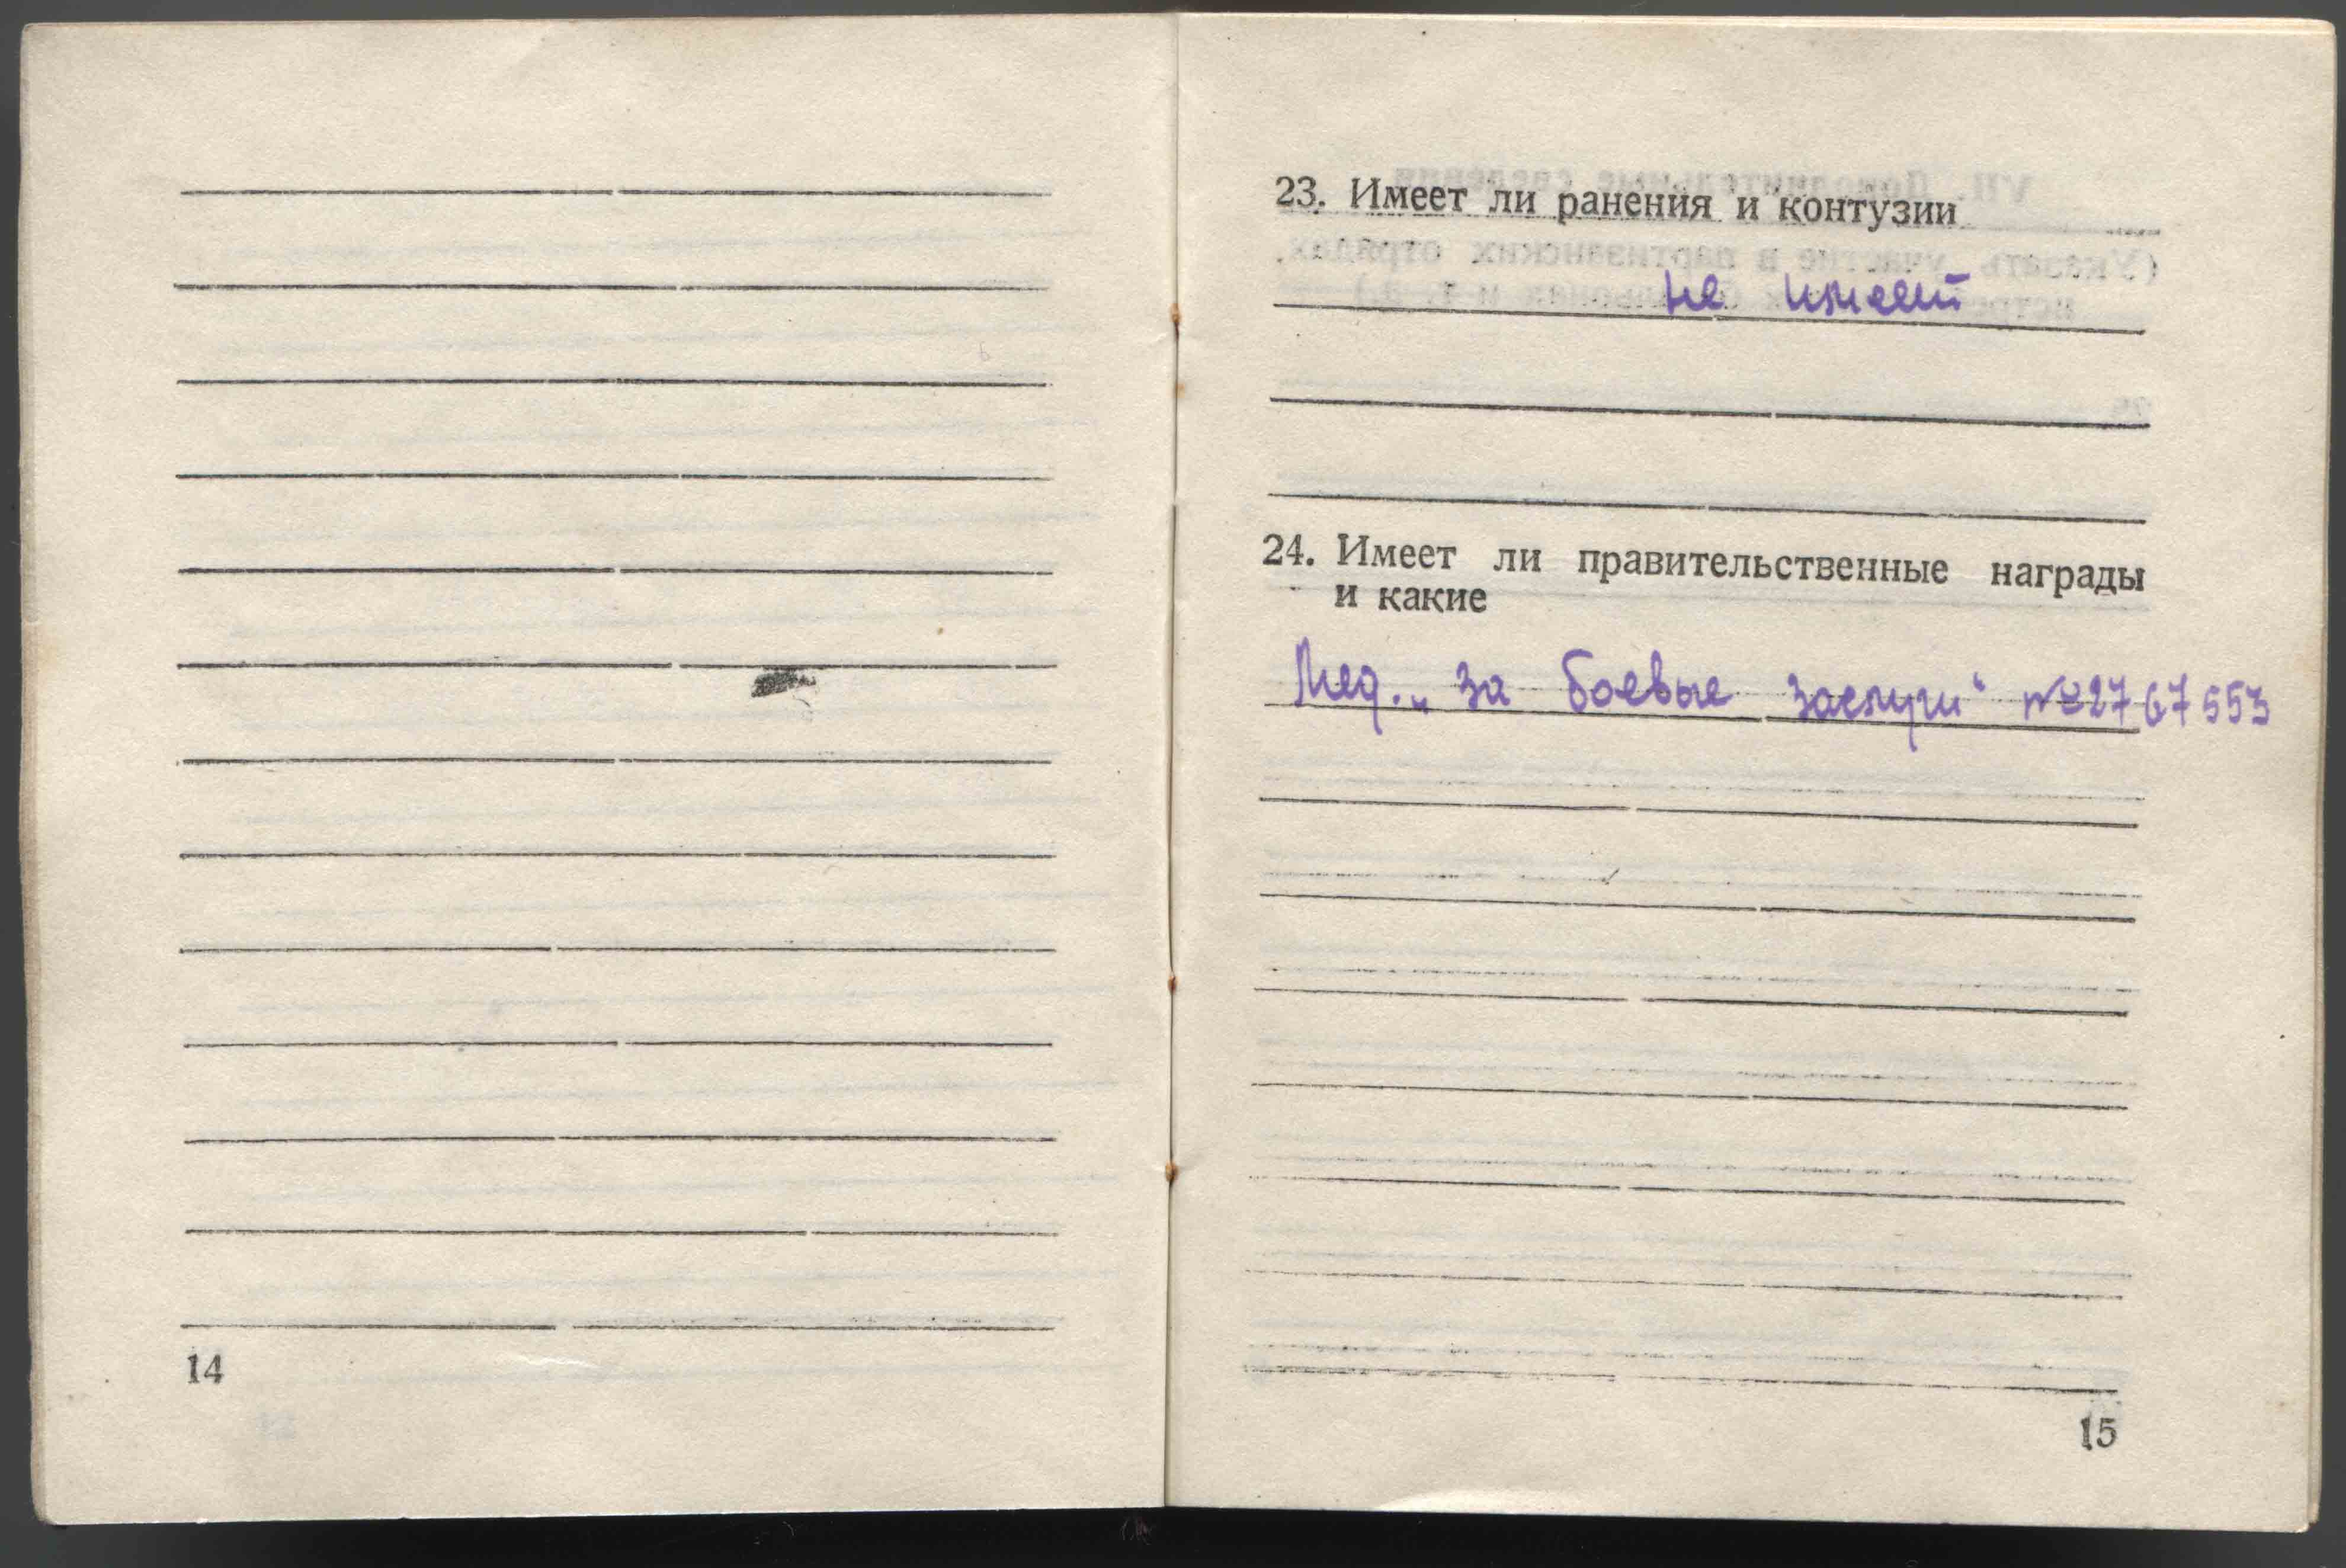 14
23. Имеет ли ранения и контузии
не имеет
24. Имеет ли правительственные награды
и какие
Мед. „За боевые заслуги“ №2767553
15